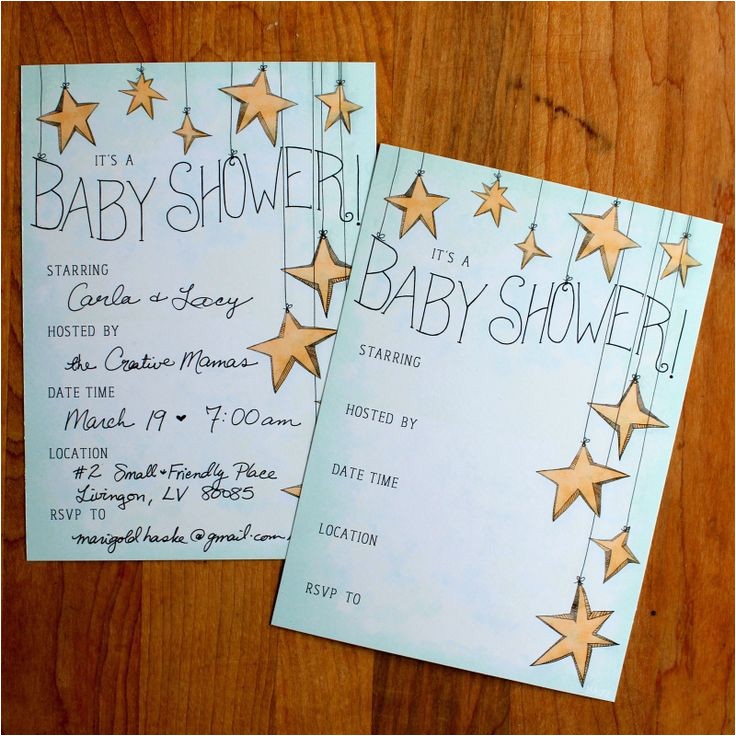 IT'S A
BABY SHOWER!
STARRING
Carla & Lacy
HOSTED BY
the Creative Mamas
DATE TIME
March 19 ♥ 7:00am
LOCATION
#2 Small & Friendly Place
Livingon, LV 80085
RSVP TO
marigoldhaske@gmail.com
IT'S A
BABY SHOWER!
STARRING
HOSTED BY
DATE TIME
LOCATION
RSVP TO